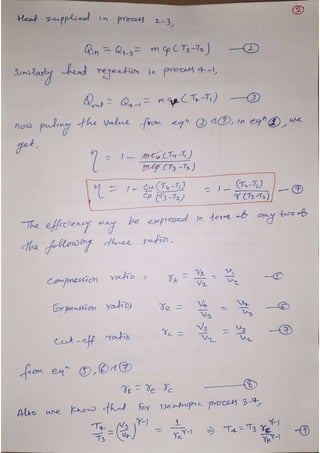 ③
Heat supplied in process 2-3,
Qin = Q2-3 = m cp (T3-T2) —②
Similarly heat rejection in process 4-1,
Qout = Q4-1 = m cv (T4-T1) —③
now puting the value from eqn ② & ③, in eqn ①, we
get,
η = 1 - m cv (T4-T1) / m cp (T3-T2)
η = 1 - cv (T4-T1) / cp (T3-T2) = 1 - (T4-T1) / γ (T3-T2) —④
The efficiency may be expressed in terms of any two of
the following three ratio.
compression ratio, rk = V1/V2 = v1/v2 —⑤
Expansion ratio, re = V4/V3 = v4/v3 —⑥
cut-off ratio rc = V3/V2 = v3/v2 —⑦
from eqn ⑤, ⑥ & ⑦
rk = re · rc —⑧
Also we know that For isentropic process 3-4,
T4/T3 = (V3/V4)^γ-1 = 1/re^γ-1 ⇒ T4 = T3 rc^γ-1/rk^γ-1 —⑨